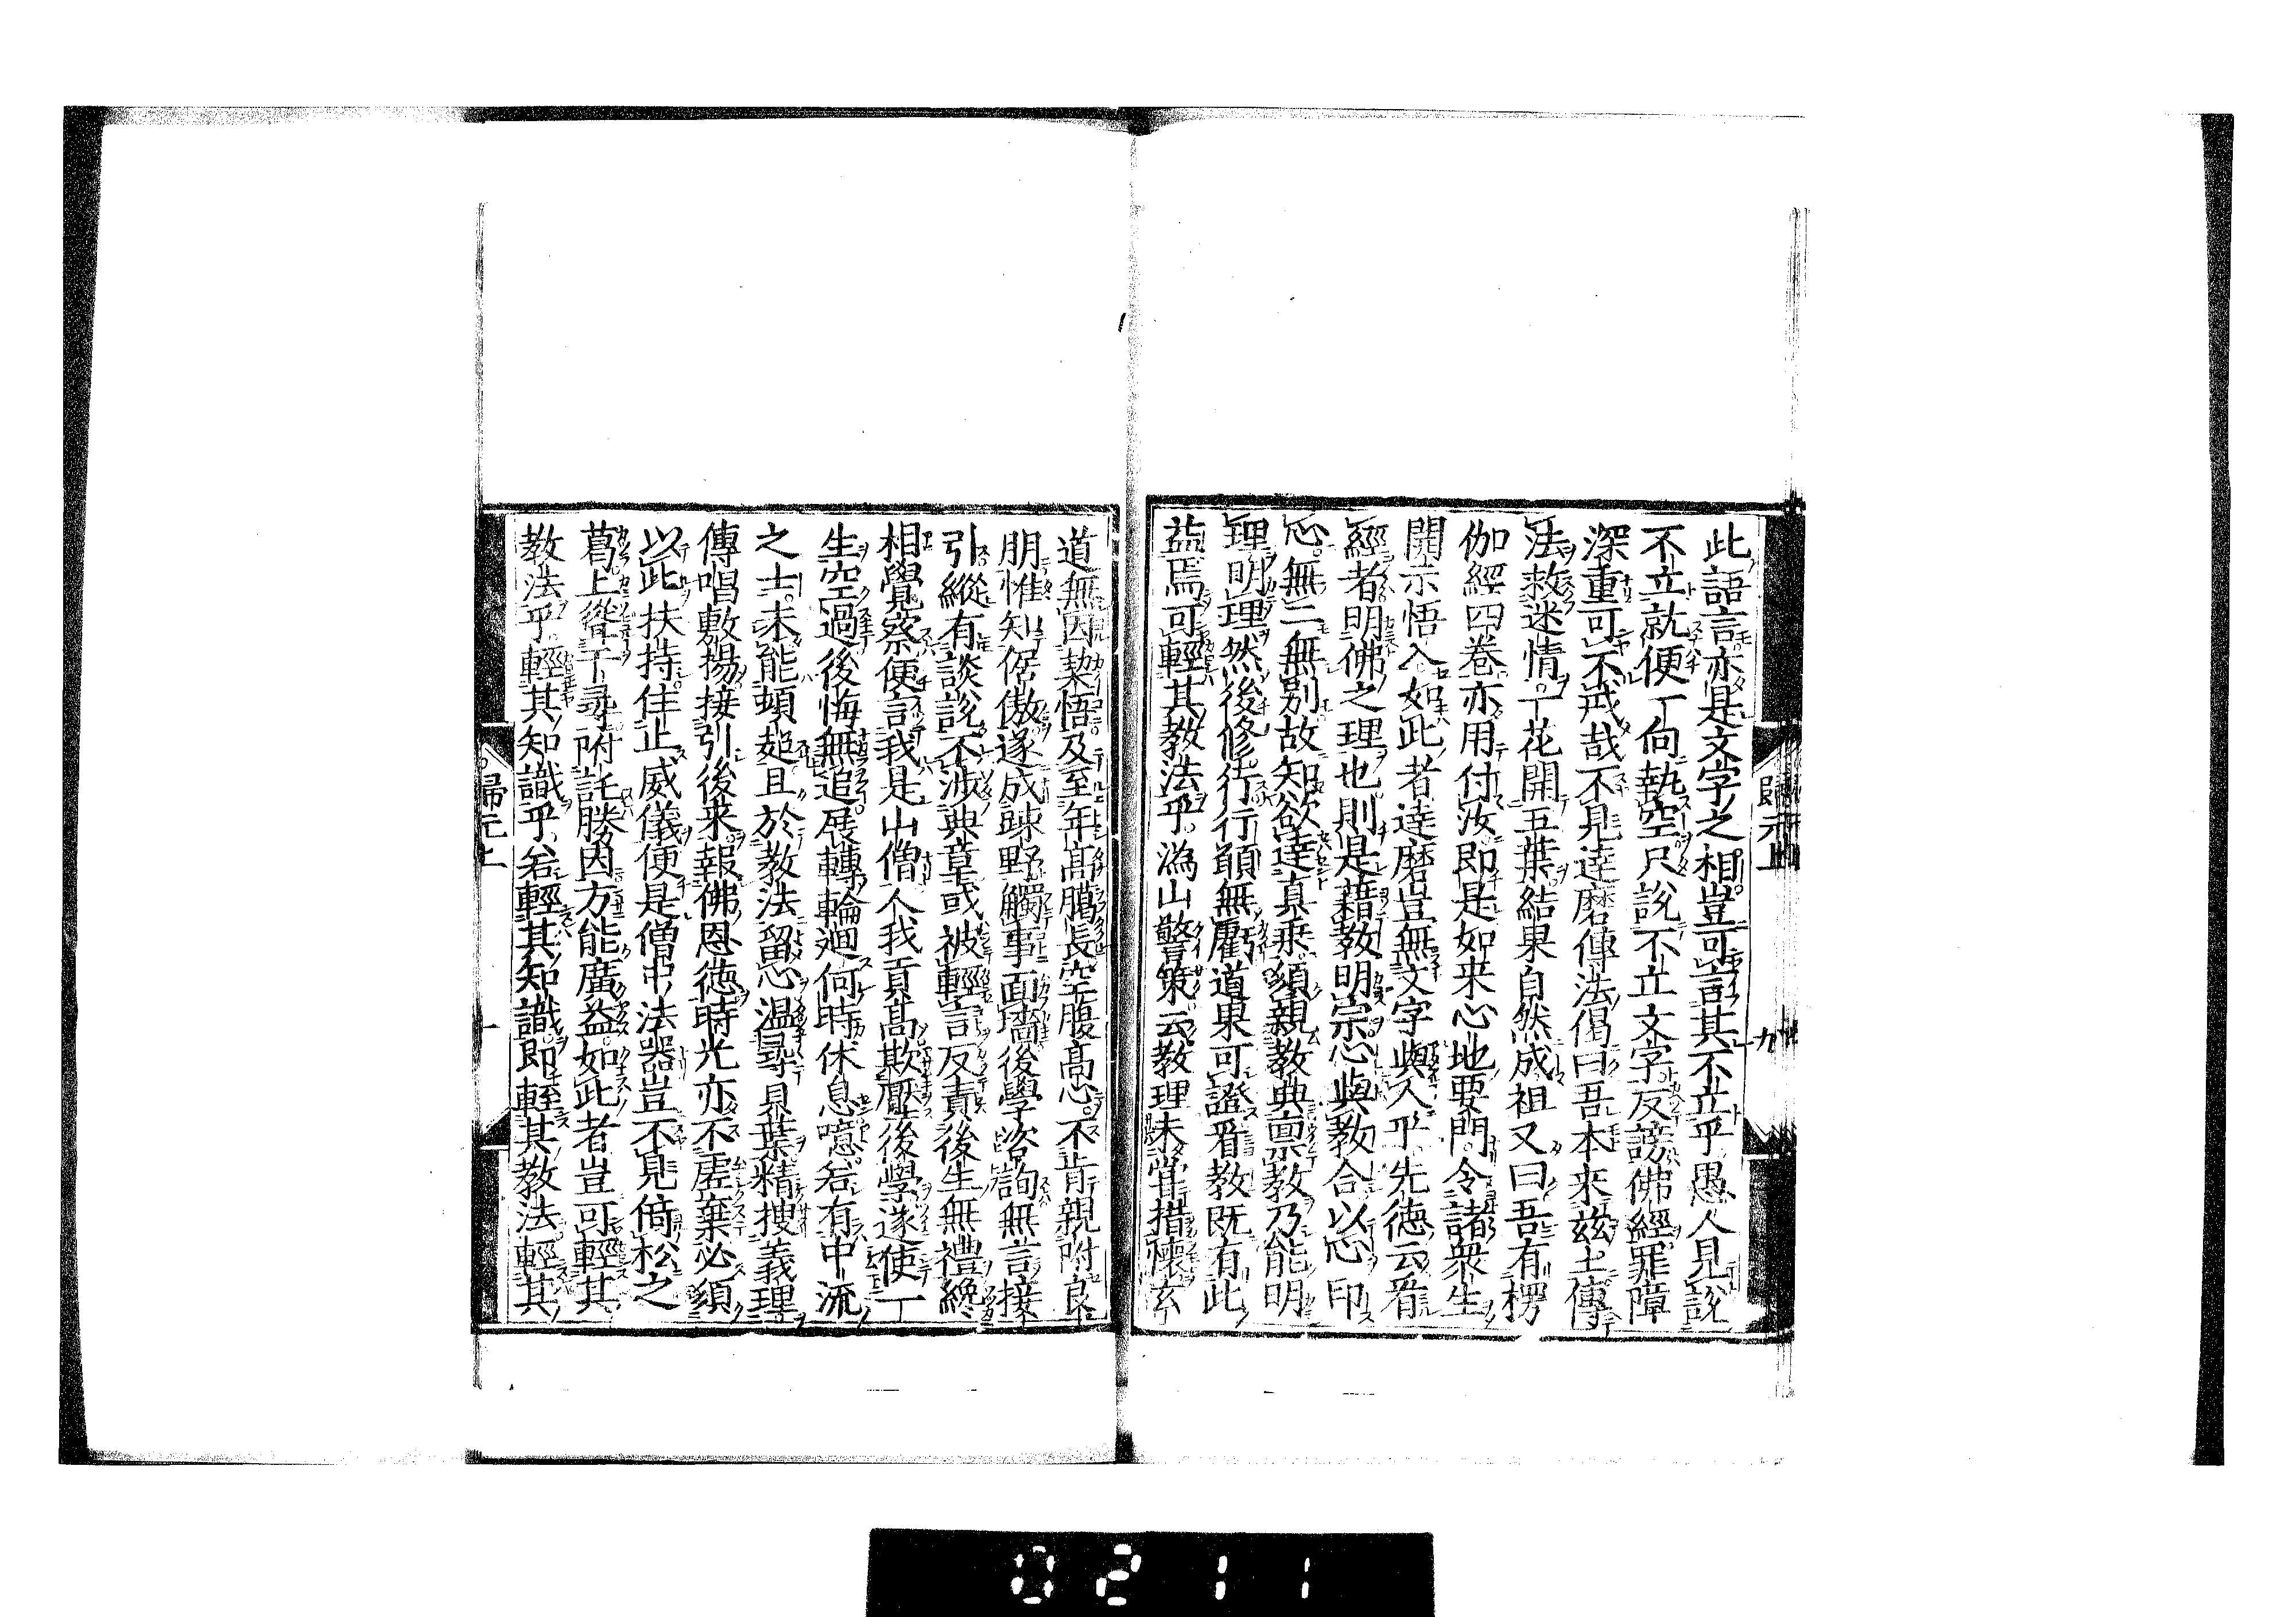 此語言亦是文字之相豈可言其不立乎愚人見說
不立就便一向執空只說不立文字反謗佛經罪障
深重可不戒哉不見達磨傳法偈曰吾本來玆土傳
法救迷情一花開五葉結果自然成祖又曰吾有楞
伽經四卷亦用付汝即是如来心地要門令諸衆生
開示悟入如此者達磨豈無文字與人乎先德云看
經者明佛之理也則是藉教明宗心與教合以心印
心無二無別故知欲達真乘須親教典禀教乃能明
理明理然後修行行願無虧道果可證看教既有此
益焉可輕其教法乎溈山警策云教理未甞措懷玄
道無因契悟及至年高臘長空腹高心不肯親附良
朋惟知倨傲遂成踈野觸事面墻後學咨詢無言接
引縱有談說不涉典章或被輕言反責後生無禮纔
相覺察便言我是山僧人我貢高欺壓後學遂使一
生空過後悔無追展轉輪迴何時休息噫若有中流
之士未能頓超且於教法留心温尋貝葉精搜義理
傳唱敷揚接引後来報佛恩德時光亦不虛棄必須
以此扶持住止威儀便是僧中法器豈不見倚松之
葛上聳千尋附託勝因方能廣益如此者豈可輕其
教法乎輕其知識乎若輕其知識即輕其教法輕其
歸元上
九
歸元上
0211